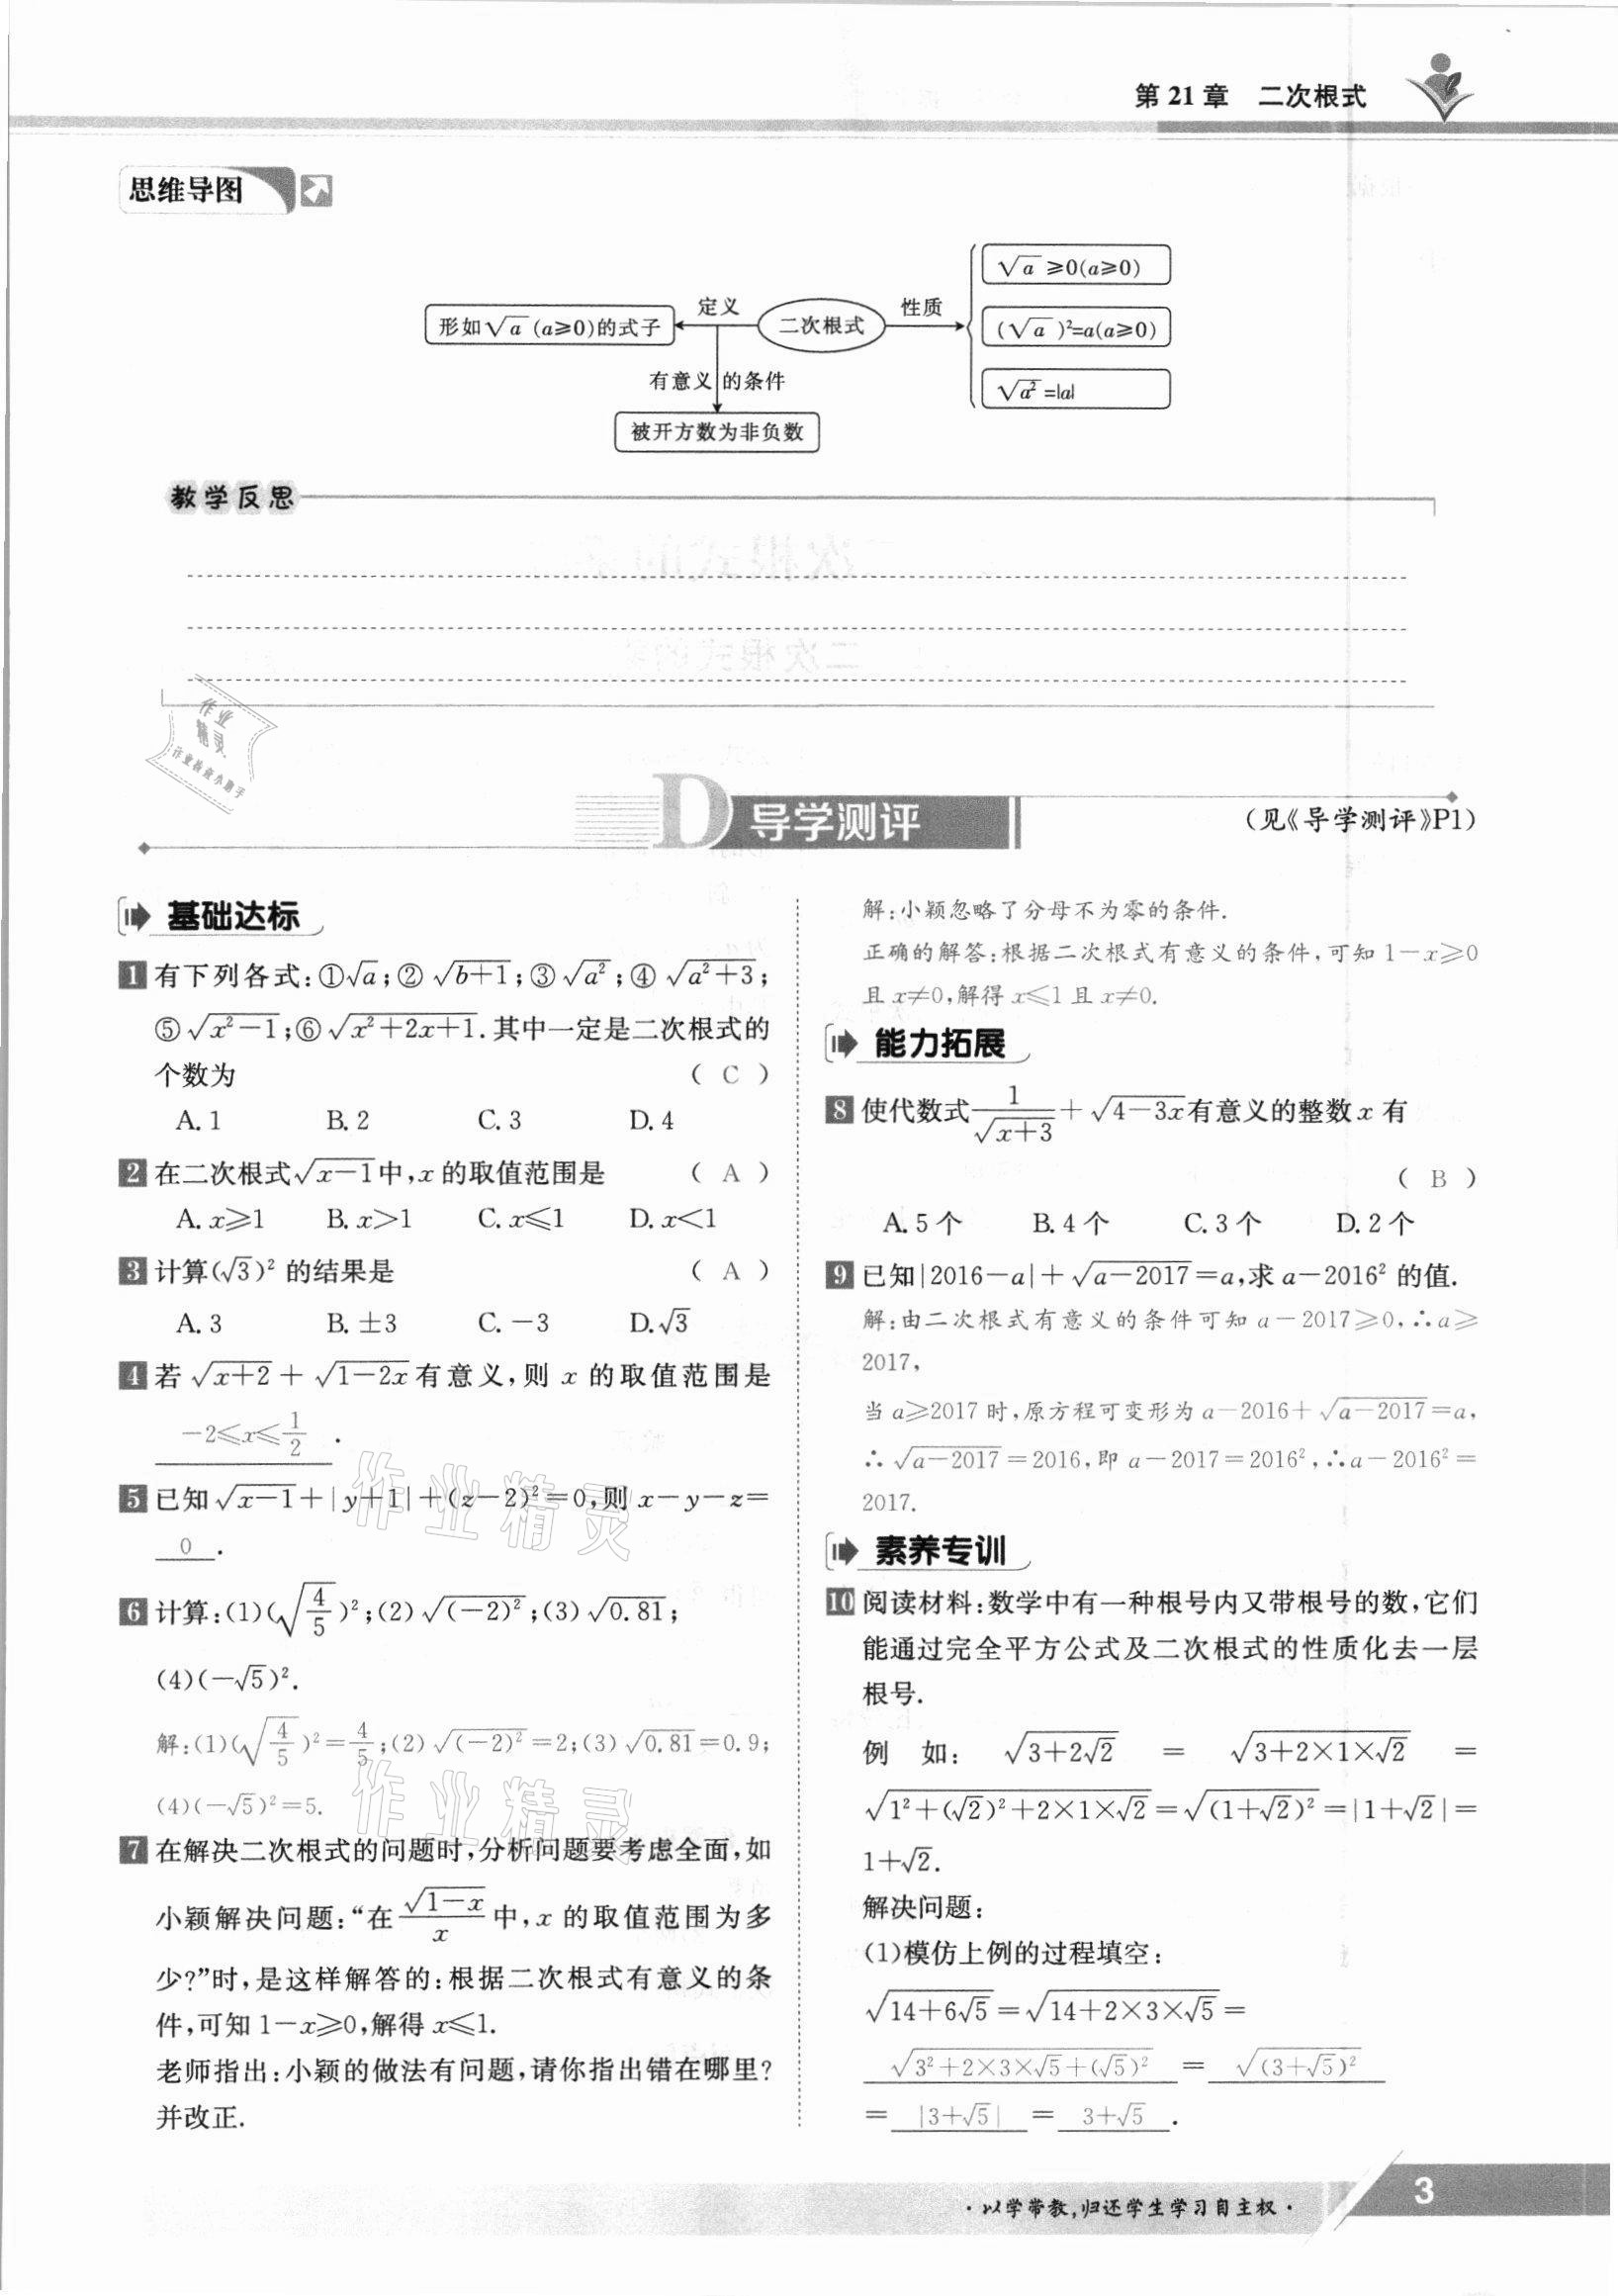 第 21 章 二次根式
思维导图
形如√a (a≥0)的式子
定义
二次根式
性质
√a ≥0(a≥0)
(√a )²=a(a≥0)
√a² =|a|
有意义的条件
被开方数为非负数
教学反思
作业
精灵
作业检查小助手
D 导学测评
(见《导学测评》P1)
基础达标
1 有下列各式:①√a;② √(b+1);③ √(a²);④ √(a²+3);
⑤√(x²-1);⑥√(x²+2x+1).其中一定是二次根式的
个数为 ( C )
A. 1 B. 2 C. 3 D. 4
2 在二次根式√(x-1)中,x 的取值范围是 ( A )
A. x≥1 B. x>1 C. x≤1 D. x<1
3 计算(√3)² 的结果是 ( A )
A. 3 B. ±3 C. -3 D. √3
4 若 √(x+2) + √(1-2x) 有意义,则 x 的取值范围是
-2≤x≤1/2 .
5 已知√(x-1)+|y+1|+(z-2)²=0,则 x-y-z=
0 .
6 计算:(1)(√(4/5))²;(2)√((-2)²);(3)√0.81;
(4)(-√5)².
解:(1)(√(4/5))²=4/5;(2)√((-2)²)=2;(3)√0.81=0.9;
(4)(-√5)²=5.
7 在解决二次根式的问题时,分析问题要考虑全面,如
小颖解决问题:“在 √(1-x)/x 中,x 的取值范围为多
少?”时,是这样解答的:根据二次根式有意义的条
件,可知 1-x≥0,解得 x≤1.
老师指出:小颖的做法有问题,请你指出错在哪里?
并改正.
解:小颖忽略了分母不为零的条件.
正确的解答:根据二次根式有意义的条件,可知 1-x≥0
且 x≠0,解得 x≤1 且 x≠0.
能力拓展
8 使代数式 1/√(x+3) + √(4-3x)有意义的整数 x 有
( B )
A. 5 个 B. 4 个 C. 3 个 D. 2 个
9 已知|2016-a|+√(a-2017)=a,求 a-2016² 的值.
解:由二次根式有意义的条件可知 a-2017≥0,∴a≥
2017,
当 a≥2017 时,原方程可变形为 a-2016+√(a-2017)=a,
∴√(a-2017)=2016,即 a-2017=2016²,∴a-2016²=
2017.
素养专训
10 阅读材料:数学中有一种根号内又带根号的数,它们
能通过完全平方公式及二次根式的性质化去一层
根号.
例如: √(3+2√2) = √(3+2×1×√2) =
√(1²+(√2)²+2×1×√2)=√((1+√2)²)=|1+√2|=
1+√2.
解决问题:
(1)模仿上例的过程填空:
√(14+6√5)=√(14+2×3×√5)=
√(3²+2×3×√5+(√5)²) = √((3+√5)²)
= |3+√5| = 3+√5 .
作业精灵
作业精灵
·以学带教,归还学生学习自主权·
3